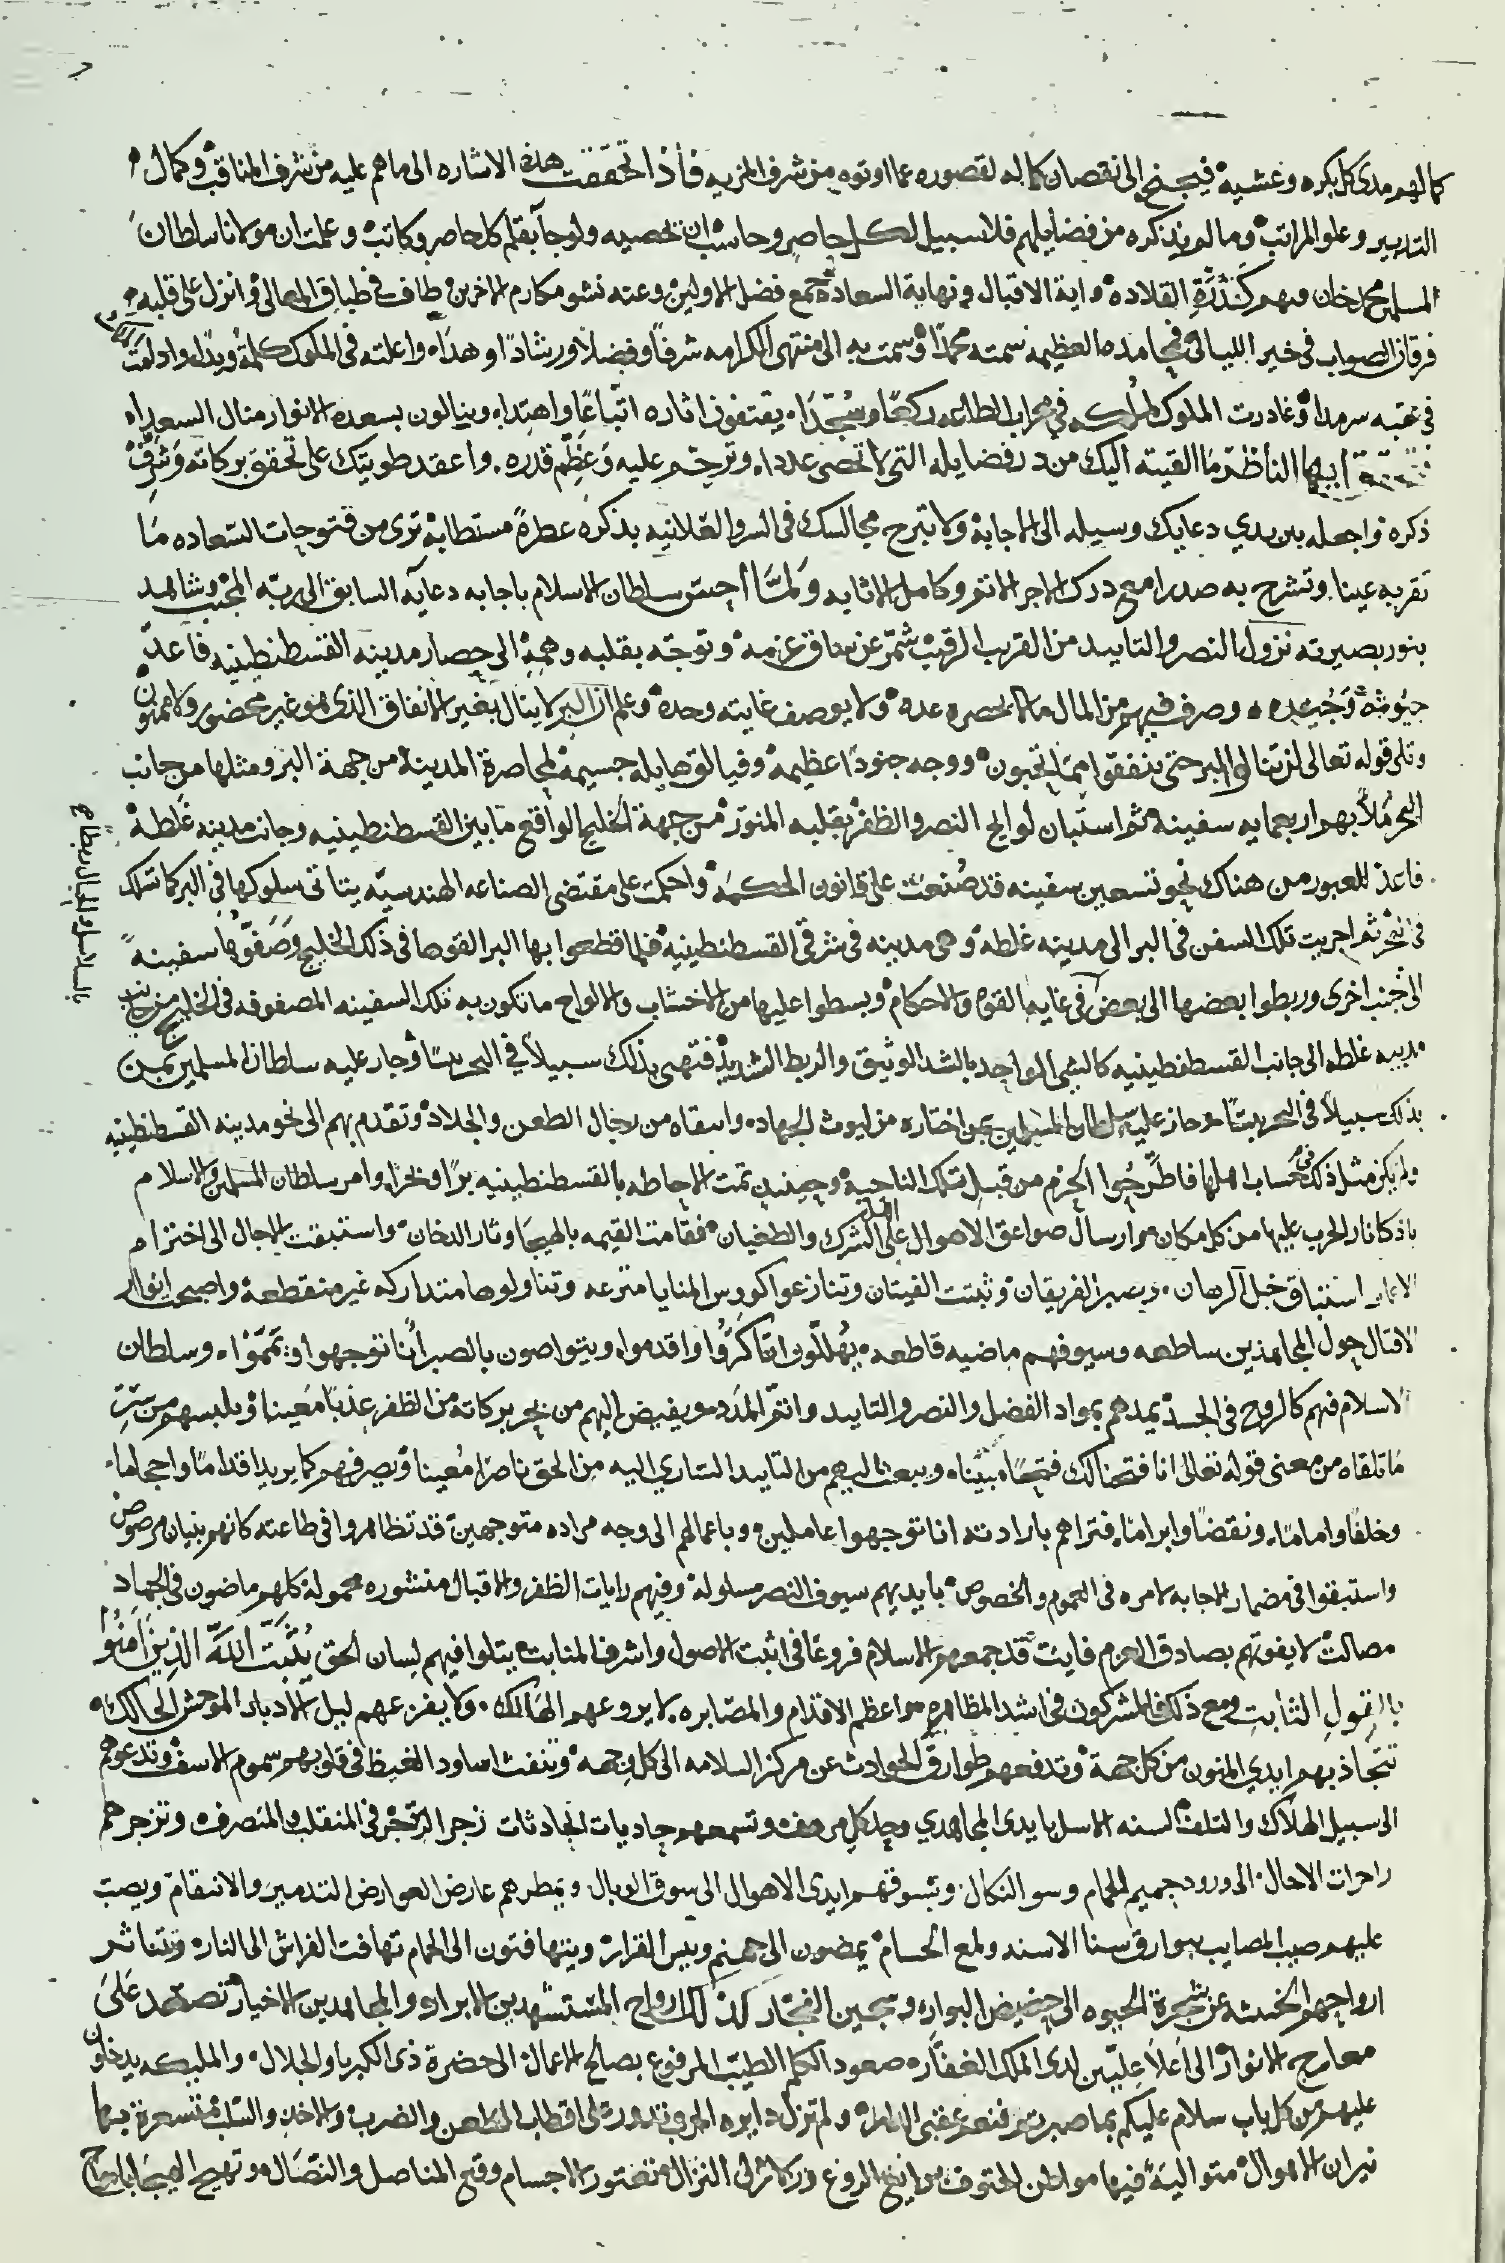 كمالهم مدى كل بكره وعشيه فيجنح الى نقصان كماله لقصوره عما اوتوه من شرف المزيه فاذا تحققت هذه الاشاره الى ما هم عليه من شرف المناقب وكمال
التدبير وعلو المراتب وما لم يذكره من فضايلهم فلا سبيل لكل حاصر وحاسب ان يحصيه ولو جآ بقلم كل حاصر وكاتب وعلمت ان مولانا سلطان
المسلمين محمد خان منهم كدرة القلاده واية الاقبال ونهاية السعاده جمع فضل الاولين وعنه نشو مكارم الاخرين طاف في طباق المعالي وانزل على قلبه
فرقان الصواب في خير الليالي محامده العظيمه سمته محمدا وسمت به الى منتهى الكرامه شرفا وفضلا ورشادا وهدا واعلته في الملوك كلمة ويدا وادامت
في عقبه سرمدا وغادرت الملوك في محراب الطاعه ركعا وسجدا يقتفون اثاره اتباعا واهتدا وينالون بسعده الانوار منال السعداء
ايها الناظر ما القيته اليك من درر فضايله التي لا تحصى عددا وترحم عليه وعظم قدره واعقد طويتك على تحقق بركاته وشرف
ذكره واجعله بين يدي دعايك وسيله الى الاجابة ولا تبرح مجالسك في السر والعلانيه بذكره عطرة مستطابة ترى من فتوحات السعاده ما
تقر به عينا وتشرح به صدرا مع درك الاجر الاتم وكامل الاثابه ولما أحس سلطان الاسلام باجابه دعآيه السابق الى ربه المجيب وشاهد
بنور بصيرته نزول النصر والتاييد من القريب الرقيب شمر عن ساق عزمه وتوجه بقلبه وهمه الى حصار مدينه القسطنطينيه فاعد
جيوشه وجنده وصرف فيهم من المال ما لا يحصره عده ولا يوصف غايته وحده وعلم ان البر لا ينال بغير الانفاق الذي هو غير محضور ولا ممنون
وتلى قوله تعالى لن تنالوا البر حتى تنفقوا مما تحبون ووجه جنودا عظيمه وفيالق هايله جسيمه لمحاصرة المدينه من جهة البر ومثلها من جانب
البحر ملا بهم اربعمايه سفينة ثم استبان لوايح النصر والظفر بقلبه المنور من جهة الخليج الواقع ما بين القسطنطينيه وجانب مدينه غلطة
فاعد للعبور من هناك نحو تسعين سفينه قد صنعت على قانون الحكمه واحكمت على مقتضى الصناعه الهندسيه يتاتى سلوكها في البر كما تسلك
في البحر ثم اجريت تلك السفن في البر الى مدينه غلطه وهى مدينه في شرقي القسطنطينيه فلما قطعوا بها البر القوها في ذلك الخليج وصفوها سفينة
بالسلاسل والحبال ربطا
الى جنب اخرى وربطوا بعضها الى بعض في غايه القوه والاحكام وبسطوا عليها من الاخشاب والالواح ما تكون به تلك السفينه المصفوفه في الخليج من
مدينه غلطه الى جانب القسطنطينيه كالشي الواحد بالشد الوثيق والربط الشديد فتهى بذلك سبيلا في البحر يبسا وجاز عليه سلطان المسلمين بمن
بذلك سبيلا في البحر يبسا وجاز عليه سلطان المسلمين بمن اختاره من ليوث الجهاد وانتقاه من رجال الطعن والجلاد وتقدم بهم الى نحو مدينه القسطنطينيه
ولم يكن مثل ذلك في حساب اهلها فاطرحوا الحزم من قبل تلك الناحيه وحينيذ تمت الاحاطه بالقسطنطينيه برا وبحرا وامر سلطان المسلمين والاسلام
باذكا نار الحرب عليها من كل مكان وارسال صواعق الاهوال على اهل الشرك والطغيان فقامت القيمه بالهيجا وثار الدخان واستبقت الاجال الى اخترام
الاعمار استباق خيل الرهان وصبر الفريقان وثبتت الفيتان وتنازعوا كووس المنايا مترعه وتناولوها متداركه غير منقطعه واصبحت انوار
الاقبال حول المجاهدين ساطعه وسيوفهم ماضيه قاطعه يهللون اذا كروا واقدموا ويتواصون بالصبر أنا توجهوا ويمموا وسلطان
الاسلام فيهم كالروح في الجسد يمدهم بمواد الفضل والنصر والتاييد واتم المدد ويفيض اليهم من بحر بركاته من الظفر عذبا معينا ويلبسهم من
ما تلقاه من معنى قوله تعالى انا فتحنا لك فتحا مبينا ويبعث اليهم من التاييد الساري اليه من الحق ناصرا معينا ويصرفهم كما يريد اقداما واحجاما
وخلفا واماما ونقضا وابراما فتراهم بارادته انا توجهوا عاملين وباعمالهم الى وجه مراده متوجهين قد تظاهروا في طاعته كانهم بنيان مرصوص
واستبقوا في مضمار الاجابه لامره في العموم والخصوص بايديهم سيوف النصر مسلوله وفيهم رايات الظفر والاقبال منشوره محموله كلهم ماضون في الجهاد
مصالت لا يفوتهم بصادق العزم فايت قد جمعهم الاسلام فروعا في اثبت الاصول واشرف المنابت يتلوا فيهم لسان الحق يثبت الله الذين امنوا
بالقول الثابت ومع ذلك فالمشركون في اشد المظاهره واعظم الاقدام والمصابره لا يروعهم الهالك ولا يفزعهم ليل الادبار الموحش الحالك
تتجاذبهم ايدي المنون من كل جهة وتدفعهم طوارق الحوادث عن مركز السلامه الى كل وجهه وتنفث اساود الغيظ في قلوبهم سموم الاسف وتدعوهم
الى سبيل الهلاك والتلف السنه الاسل بايدى المجاهدين وحد كل مرهف وتسمعهم حاديات الحادثات زجرا الزجر في المنقلب والمنصرف وتزجرهم
زاجرات الاجال الى ورود حميم الحمام وسو النكال وتسوقهم ايدي الاهوال الى سوق الوبال ويمطرهم عارض العوارض التدمير والانتقام ويصب
عليهم صيب المصايب ببوارق سنا الاسنه ولمع الحسام يمضون الى جهنم وبيس القرار ويتهافتون الى الحمام تهافت الفراش الى النار وتتناثر
ارواحهم الخبيثه عن شجرة الحيوه الى حضيض البوار وسجين الفجار كذلك ارواح المستشهدين الابرار والمجاهدين الاخيار تصعد على
معارج الانوار الى اعلا عليين لدى الملك الغفار صعود الكلم الطيب المرفوع بصالح الاعمال الى حضرة ذى الكبريا والجلال والمليكه يدخلون
عليهم من كل باب سلام عليكم بما صبرتم فنعم عقبى الدار ولم تزل دايره الحروب تدور على اقطاب الطعن والضرب والاخذ والسلب متسعرة بها
نيران الاهوال متواليه فيها مواطن الحتوف نزال النزال الاجسام وقيع المناصل والنصال وتهيج الهيجا